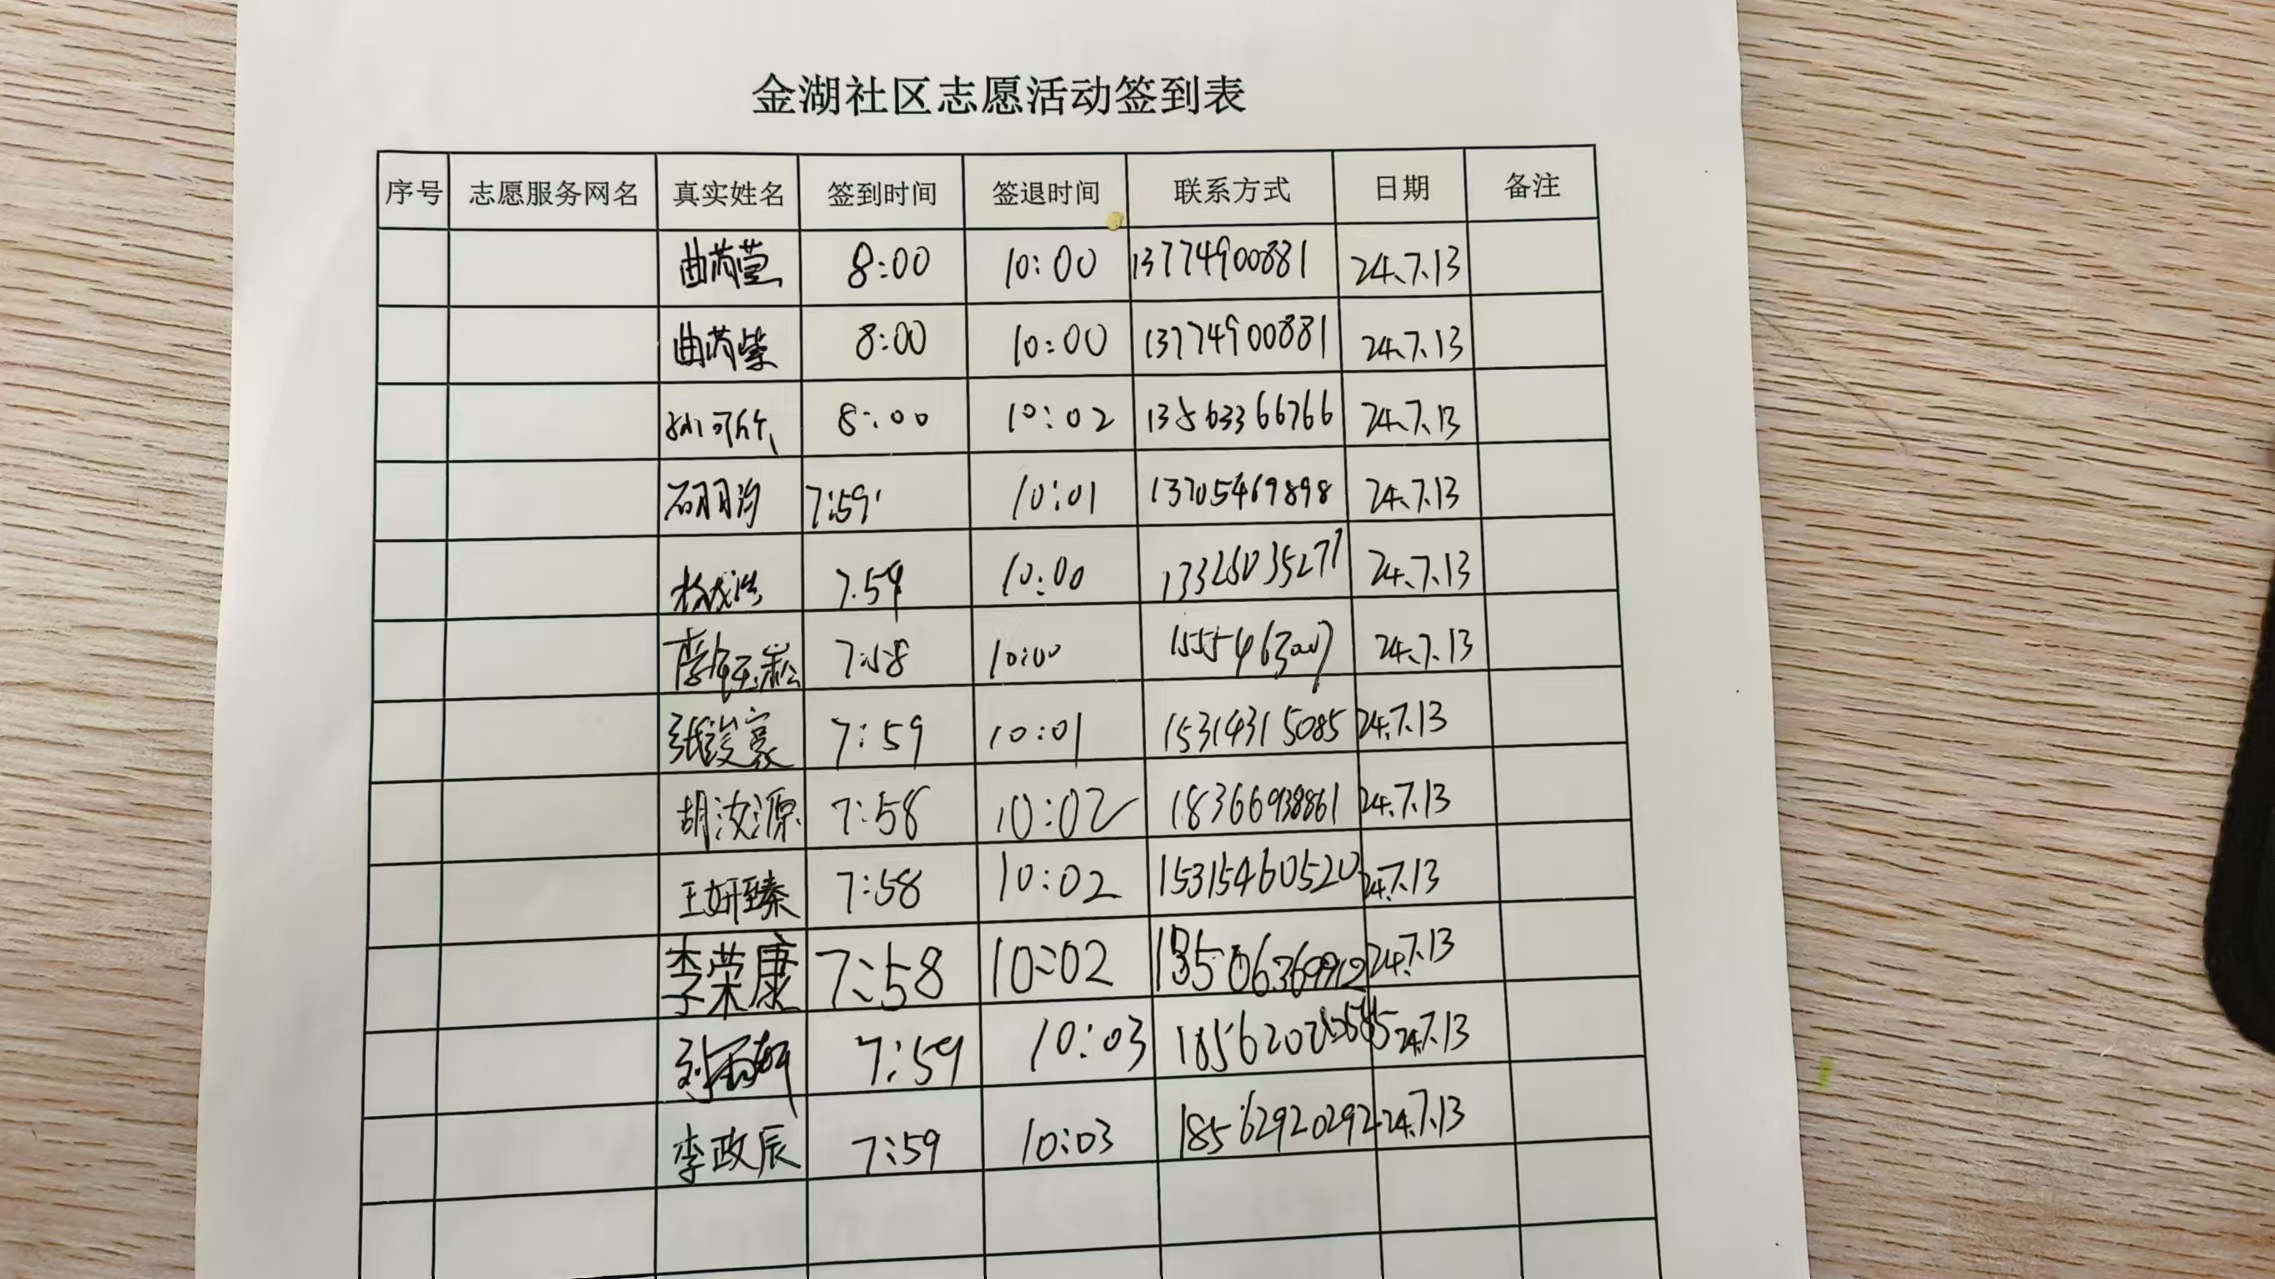 金湖社区志愿活动签到表
序号 志愿服务网名 真实姓名 签到时间 签退时间 联系方式 日期 备注
曲芮萱 8:00 10:00 13774900881 24.7.13
曲芮紫 8:00 10:00 13774900881 24.7.13
8:00 10:02 13563366766 24.7.13
7:59 10:01 13705469898 24.7.13
7.59 10:00 24.7.13
7:58 10:00 24.7.13
张浚豪 7:59 10:01 15314315085 24.7.13
胡汝源 7:58 10:02 18366938861 24.7.13
王妍臻 7:58 10:02 15315460520 24.7.13
李荣康 7:58 10:02 24.7.13
7:59 10:03 24.7.13
李政辰 7:59 10:03 18562920292 24.7.13